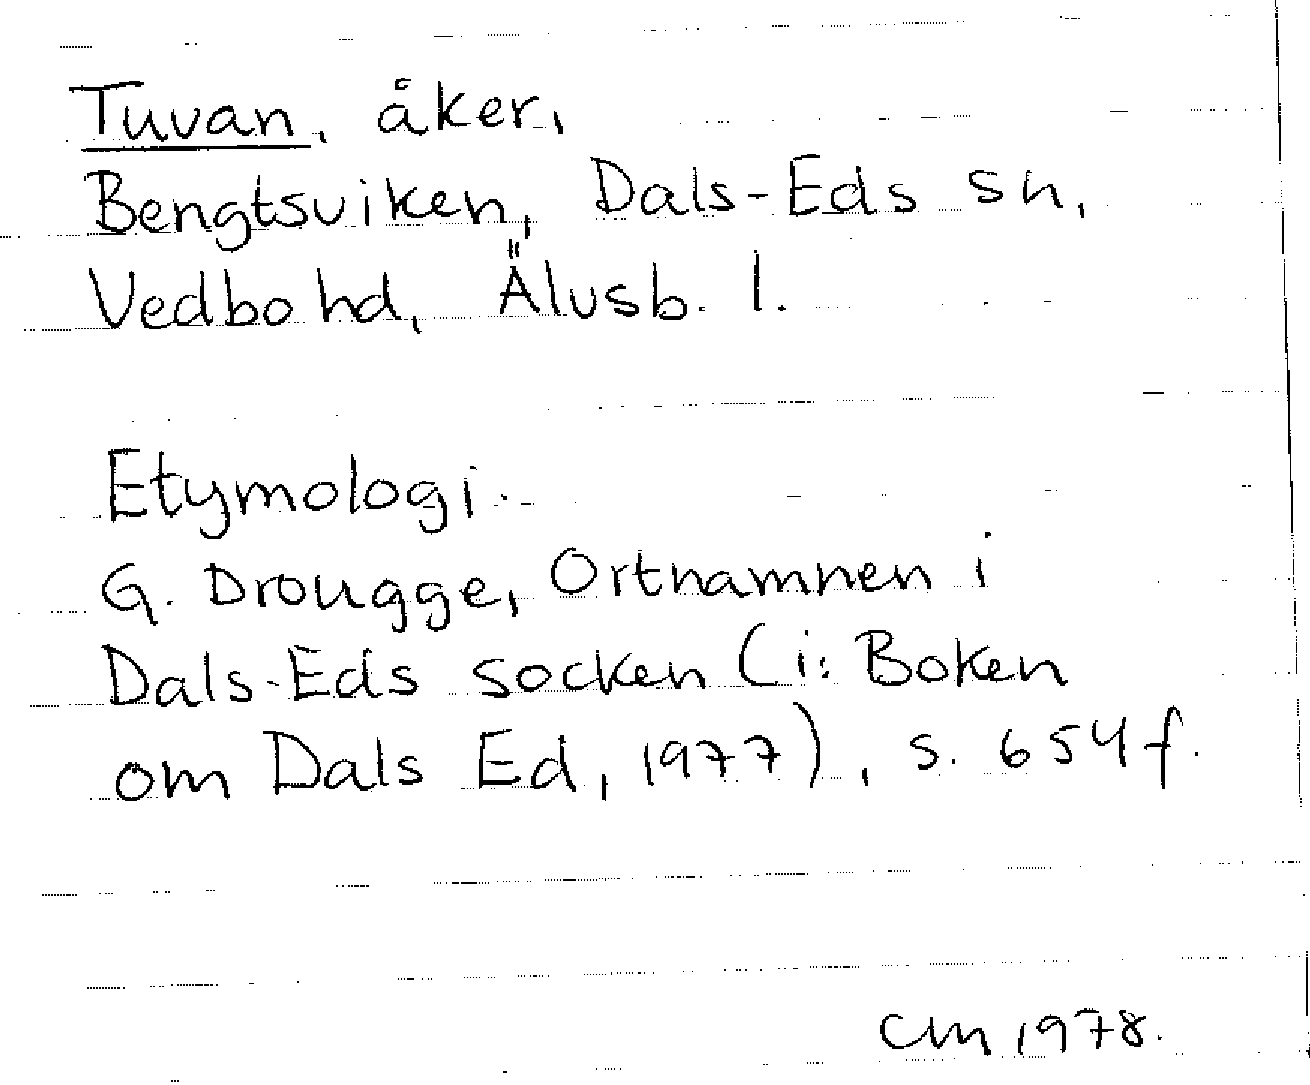 Tuvan, åker,
Bengtsviken, Dals-Eds sn,
Vedbo hd, Älvsb. l.
Etymologi.
G. Drougge, Ortnamnen i
Dals-Eds socken (i: Boken
om Dals Ed, 1977), s. 654f.
CM 1978.